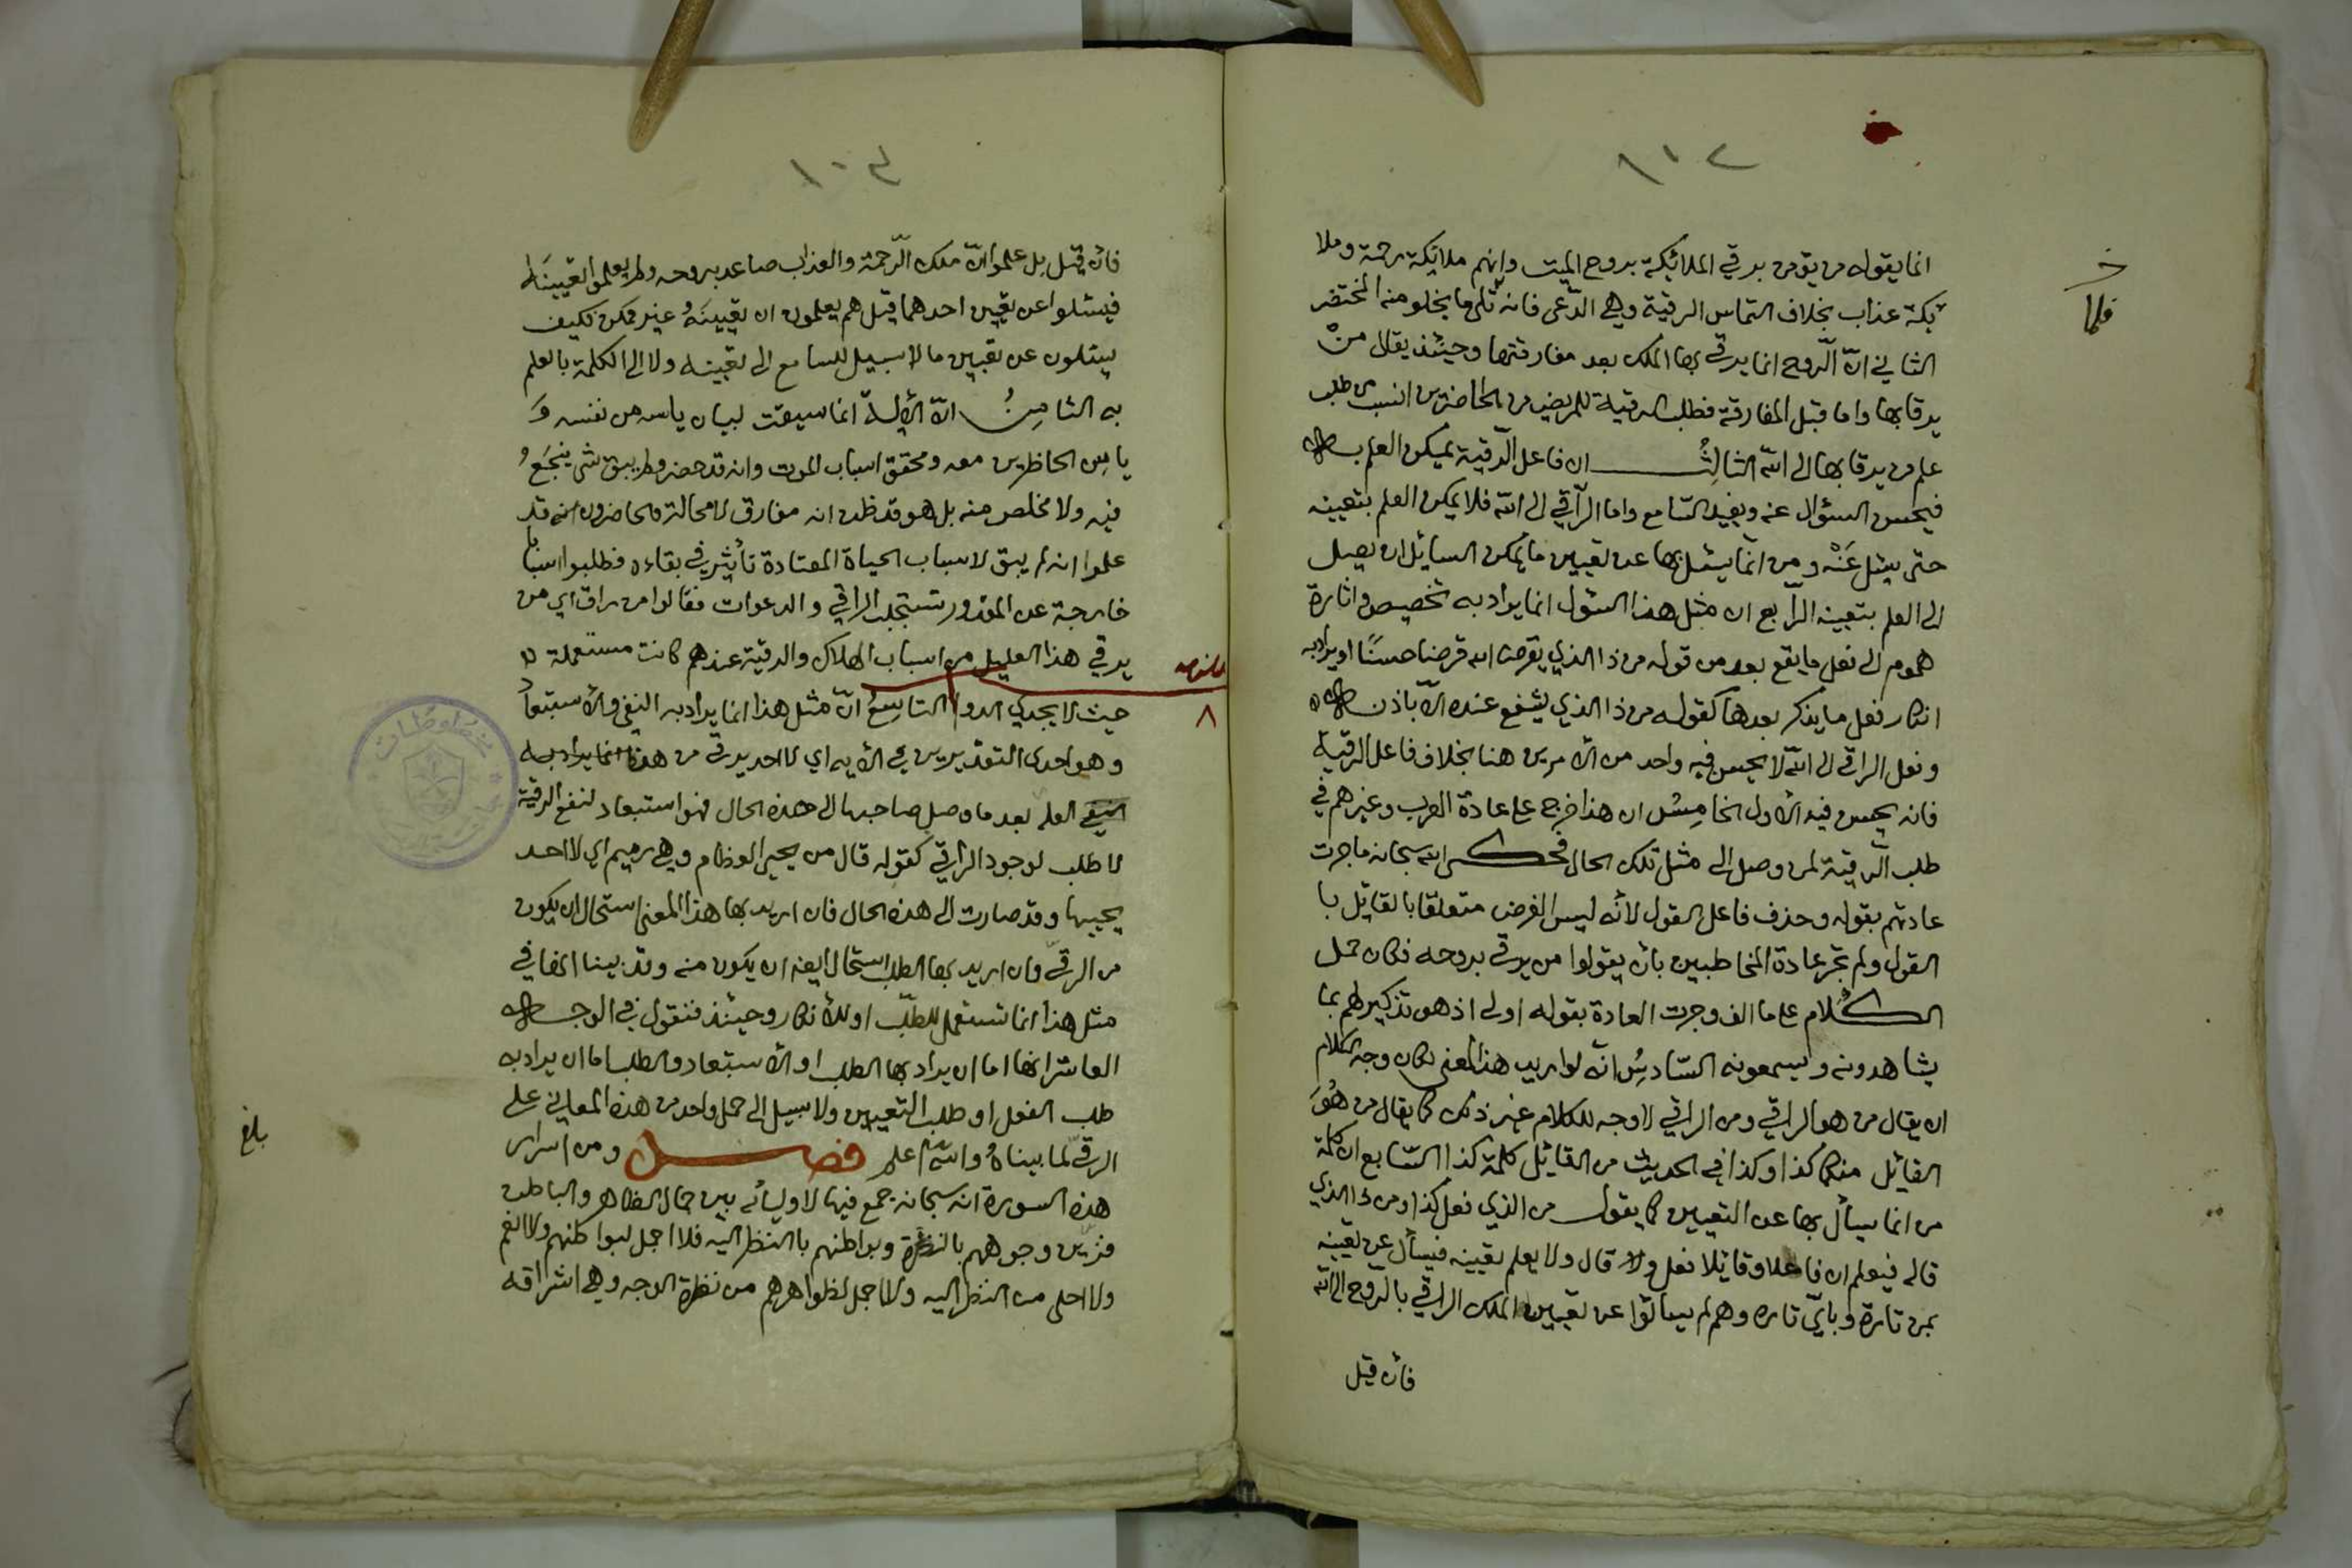 ١٠٢
انما يقوله من يؤمن برقي الملائكة بروح الميت وانهم ملائكة رحمة وملا
ئكة عذاب بخلاف التماس الرقية وهي الدعى فانه قل ما يخلو منه المختضر
فلما
الثاني ان الروح انما يرقى بها الملك بعد مفارقتها وحينئذ يقال من
يرقا بها واما قبل المفارقة فطلب الرقية للمريض من الحاضرين انسب من طلب
علم من يرقا بها الى الله الثالث ان فاعل الرقية يمكن العلم به
فيحسن السؤال عنه ويفيد السامع واما الراقي الى الله فلا يمكن العلم بتعيينه
حتى يسئل عنه ومن انما يسئل بها عن تعيين ما يمكن السايل ان يصل
الى العلم بتعيينه الرابع ان مثل هذا السؤل انما يراد به تخصيص واثارة
همهم الى فعل ما يقع بعد من قوله من ذا الذي يقرض الله قرضا حسنا او يراد به
انكار فعل ما يذكر بعدها كقوله من ذا الذي يشفع عنده الا باذنه
وفعل الراقي الى الله لا يحسن فيه واحد من الامرين هنا بخلاف فاعل الرقية
فانه يحسن فيه الاول الخامس ان هذا خرج على عادة العرب وغيرهم في
طلب الرقية لمن وصل الى مثل تلك الحال فحكى الله سبحانه ما جرت
عادتهم بقوله وحذف فاعل القول لأنه ليس الغرض متعلقا بالقايل با
القول ولم تجر عادة المخاطبين بأن يقولوا من يرقى بروحه فكان حمل
الكلام على ما الف وجرت العادة بقوله اولى اذ هو تذكير لهم بما
يشاهدونه ويسمعونه السادس انه لو اريد هذا المعنى لكان وجه الكلام
ان يقال من هو الراقي ومن الراقي لا وجه للكلام غير ذلك كما يقال من هو
القائل منكما كذا وكذا في الحديث من القائل كلمة كذا السابع ان كلمة
من انما يسأل بها عن التعيين كما يقول من الذي فعل كذا ومن ذا الذي
قاله فيعلم ان فاعلا وقائلا فعل وقال ولا يعلم تعيينه فيسأل عن تعيينه
بمن تارة وبأي تاره وهم لم يسألوا عن تعيين الملك الراقي بالروح الى الله
فان قيل
١٠٣
فان قيل بل علموا ان ملك الرحمة والعذاب صاعد بروحه ولم يعلموا تعيينه
فيسئلوا عن تعيين احدهما قيل هم يعلمون ان تعيينه غير ممكن فكيف
يسئلون عن تعيين ما لا سبيل للسامع الى تعيينه ولا الى الكلمة بالعلم
به الثامن ان الآية انما سيقت لبيان ياسه من نفسه و
ياس الحاظرين معه وتحقق اسباب الموت وانه قد حضر ولم يبق شى ينجع
فيه ولا مخلص منه بل هو قد ظن انه مفارق لا محالة والحاضرون انه قد
علموا انه لم يبق لاسباب الحياة المعتادة تأثير في بقاءه فطلبوا اسبابا
خارجة عن المقدور تستجلب الراقي والدعوات فقالوا من راق اي من
يرقي هذا العليل من اسباب الهلاك والرقية عندهم كانت مستعملة
٨
حيث لا يجدي الدوا التاسع ان مثل هذا انما يراد به النفي والاستبعاد
وهو احدى التقديرين في الآيه اي لا احد يرقى من هذه انما يراد به
العلم بعد ما وصل صاحبها الى هذه الحال فهو استبعاد لنفع الرقية
لا طلب لوجود الراقي كقوله قال من يحيي العظام وهي رميم اي لا احد
يحييها وقد صارت الى هذه الحال فان اريد بها هذا المعنى استحال ان يكون
من الرقي وان اريد بها الطلب استحال ايضا ان يكون منه وقد بينا انها في
مثل هذا انما تستعمل للطلب او للأنكار وحينئذ فنقول في الوجه
العاشر انها اما ان يراد بها الطلب او الاستبعاد والطلب اما ان يراد به
طلب الفعل او طلب التعيين ولا سبيل الى حمل واحد من هذه المعاني على
بلغ
الرقي لما بيناه والله اعلم فصل ومن اسرار
هذه السورة انه سبحانه جمع فيها لاوليائه بين جمال الظاهر والباطن
فزين وجوههم بالنظرة وبواطنهم بالنظر اليه فلا اجمل لبواطنهم ولا انعم
ولا احلى من النظر اليه ولا اجمل لظواهرهم من نظرة الوجه وهي اشراقه